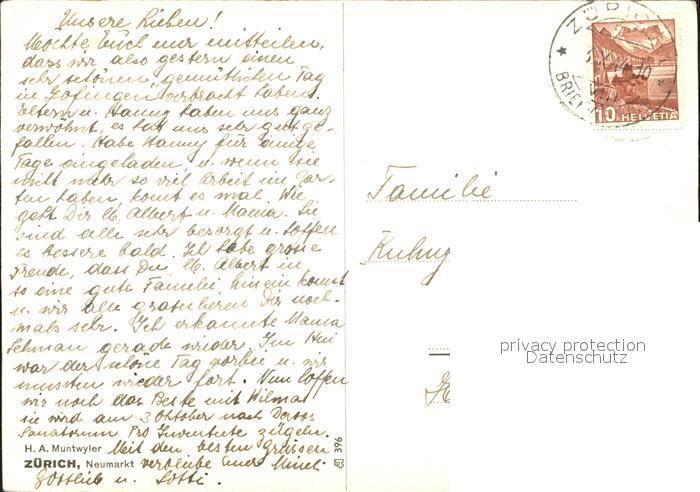 Unsere Lieben!
Möchte Euch nur mitteilen,
dass wir also gestern einen
sehr schönen, gemütlichen Tag
in Zofingen verbracht haben.
Eltern u. Hanny haben uns ganz
verwöhnt, es hat uns sehr gut ge-
fallen. Habe Hanny für einige
Tage eingeladen u. wenn sie
nicht mehr so viel Arbeit im Gar-
ten haben, komt es mal. Wie
geht Dir lb. Albert u. Mama. Sie
sind alle sehr besorgt u. hoffen
es bessere bald. Ich habe grosse
Freude, dass Du, lb. Albert in
so eine gute Familie hinein komst
u. wir alle gratulieren Dir noch-
mals sehr. Ich erkannte Mama
Lehman gerade wieder. Im Hui
war der schöne Tag vorbei u. wir
mussten wieder fort. Nun hoffen
wir noch das Beste mit Wilma
sie wird am 3 Oktober nach Davos
Sanatorium Pro Juventute zügeln.
Mit den besten Grüssen
verbleibe Euer
Gottlieb u. Lotti.
H. A. Muntwyler
ZÜRICH, Neumarkt
396
ZÜRICH
BRIEF
10 HELVETIA
Familie
privacy protection
Datenschutz